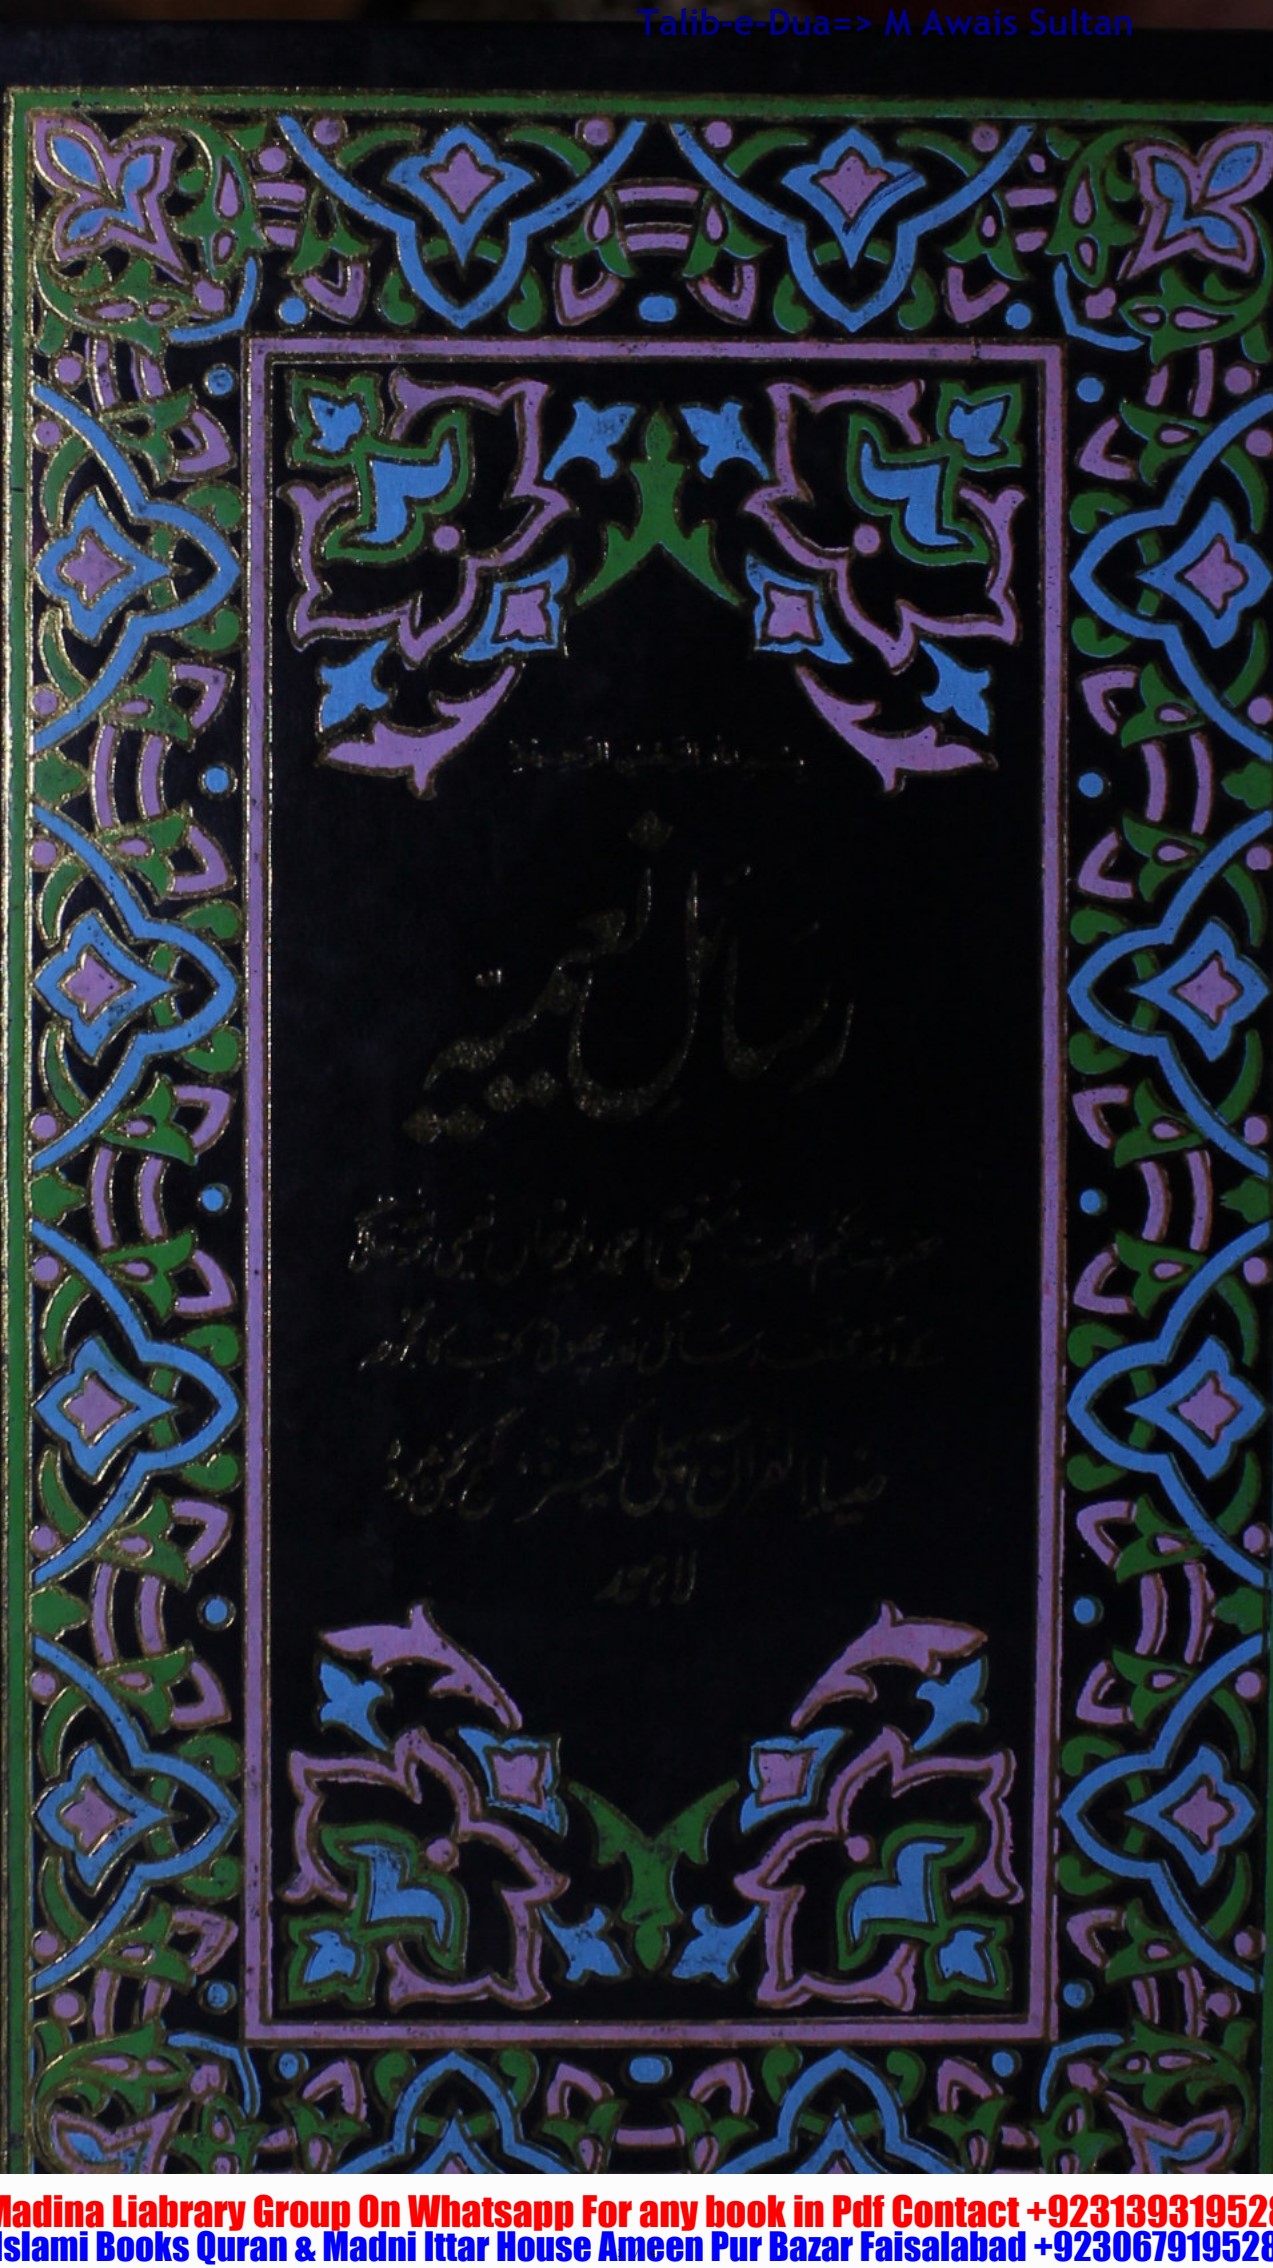 Talib-e-Dua=> M Awais Sultan
بسم الله الرحمن الرحیم
رسائل نعیمیہ
مفتی احمد یار خان نعیمی
رسائل اور چھوٹی کتب کا مجموعہ
ضیاء القرآن پبلی کیشنز، گنج بخش روڈ
لاہور
Madina Liabrary Group On Whatsapp For any book in Pdf Contact +923139319528
Islami Books Quran & Madni Ittar House Ameen Pur Bazar Faisalabad +923067919528